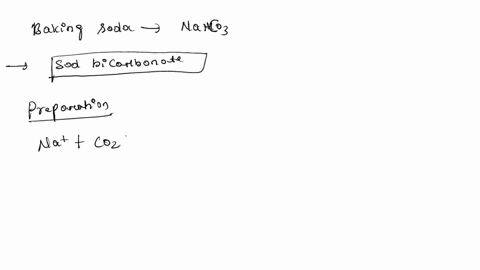 Baking soda → NaHCO3
→ Sod bicarbonate
Preparation
Na+ + CO2